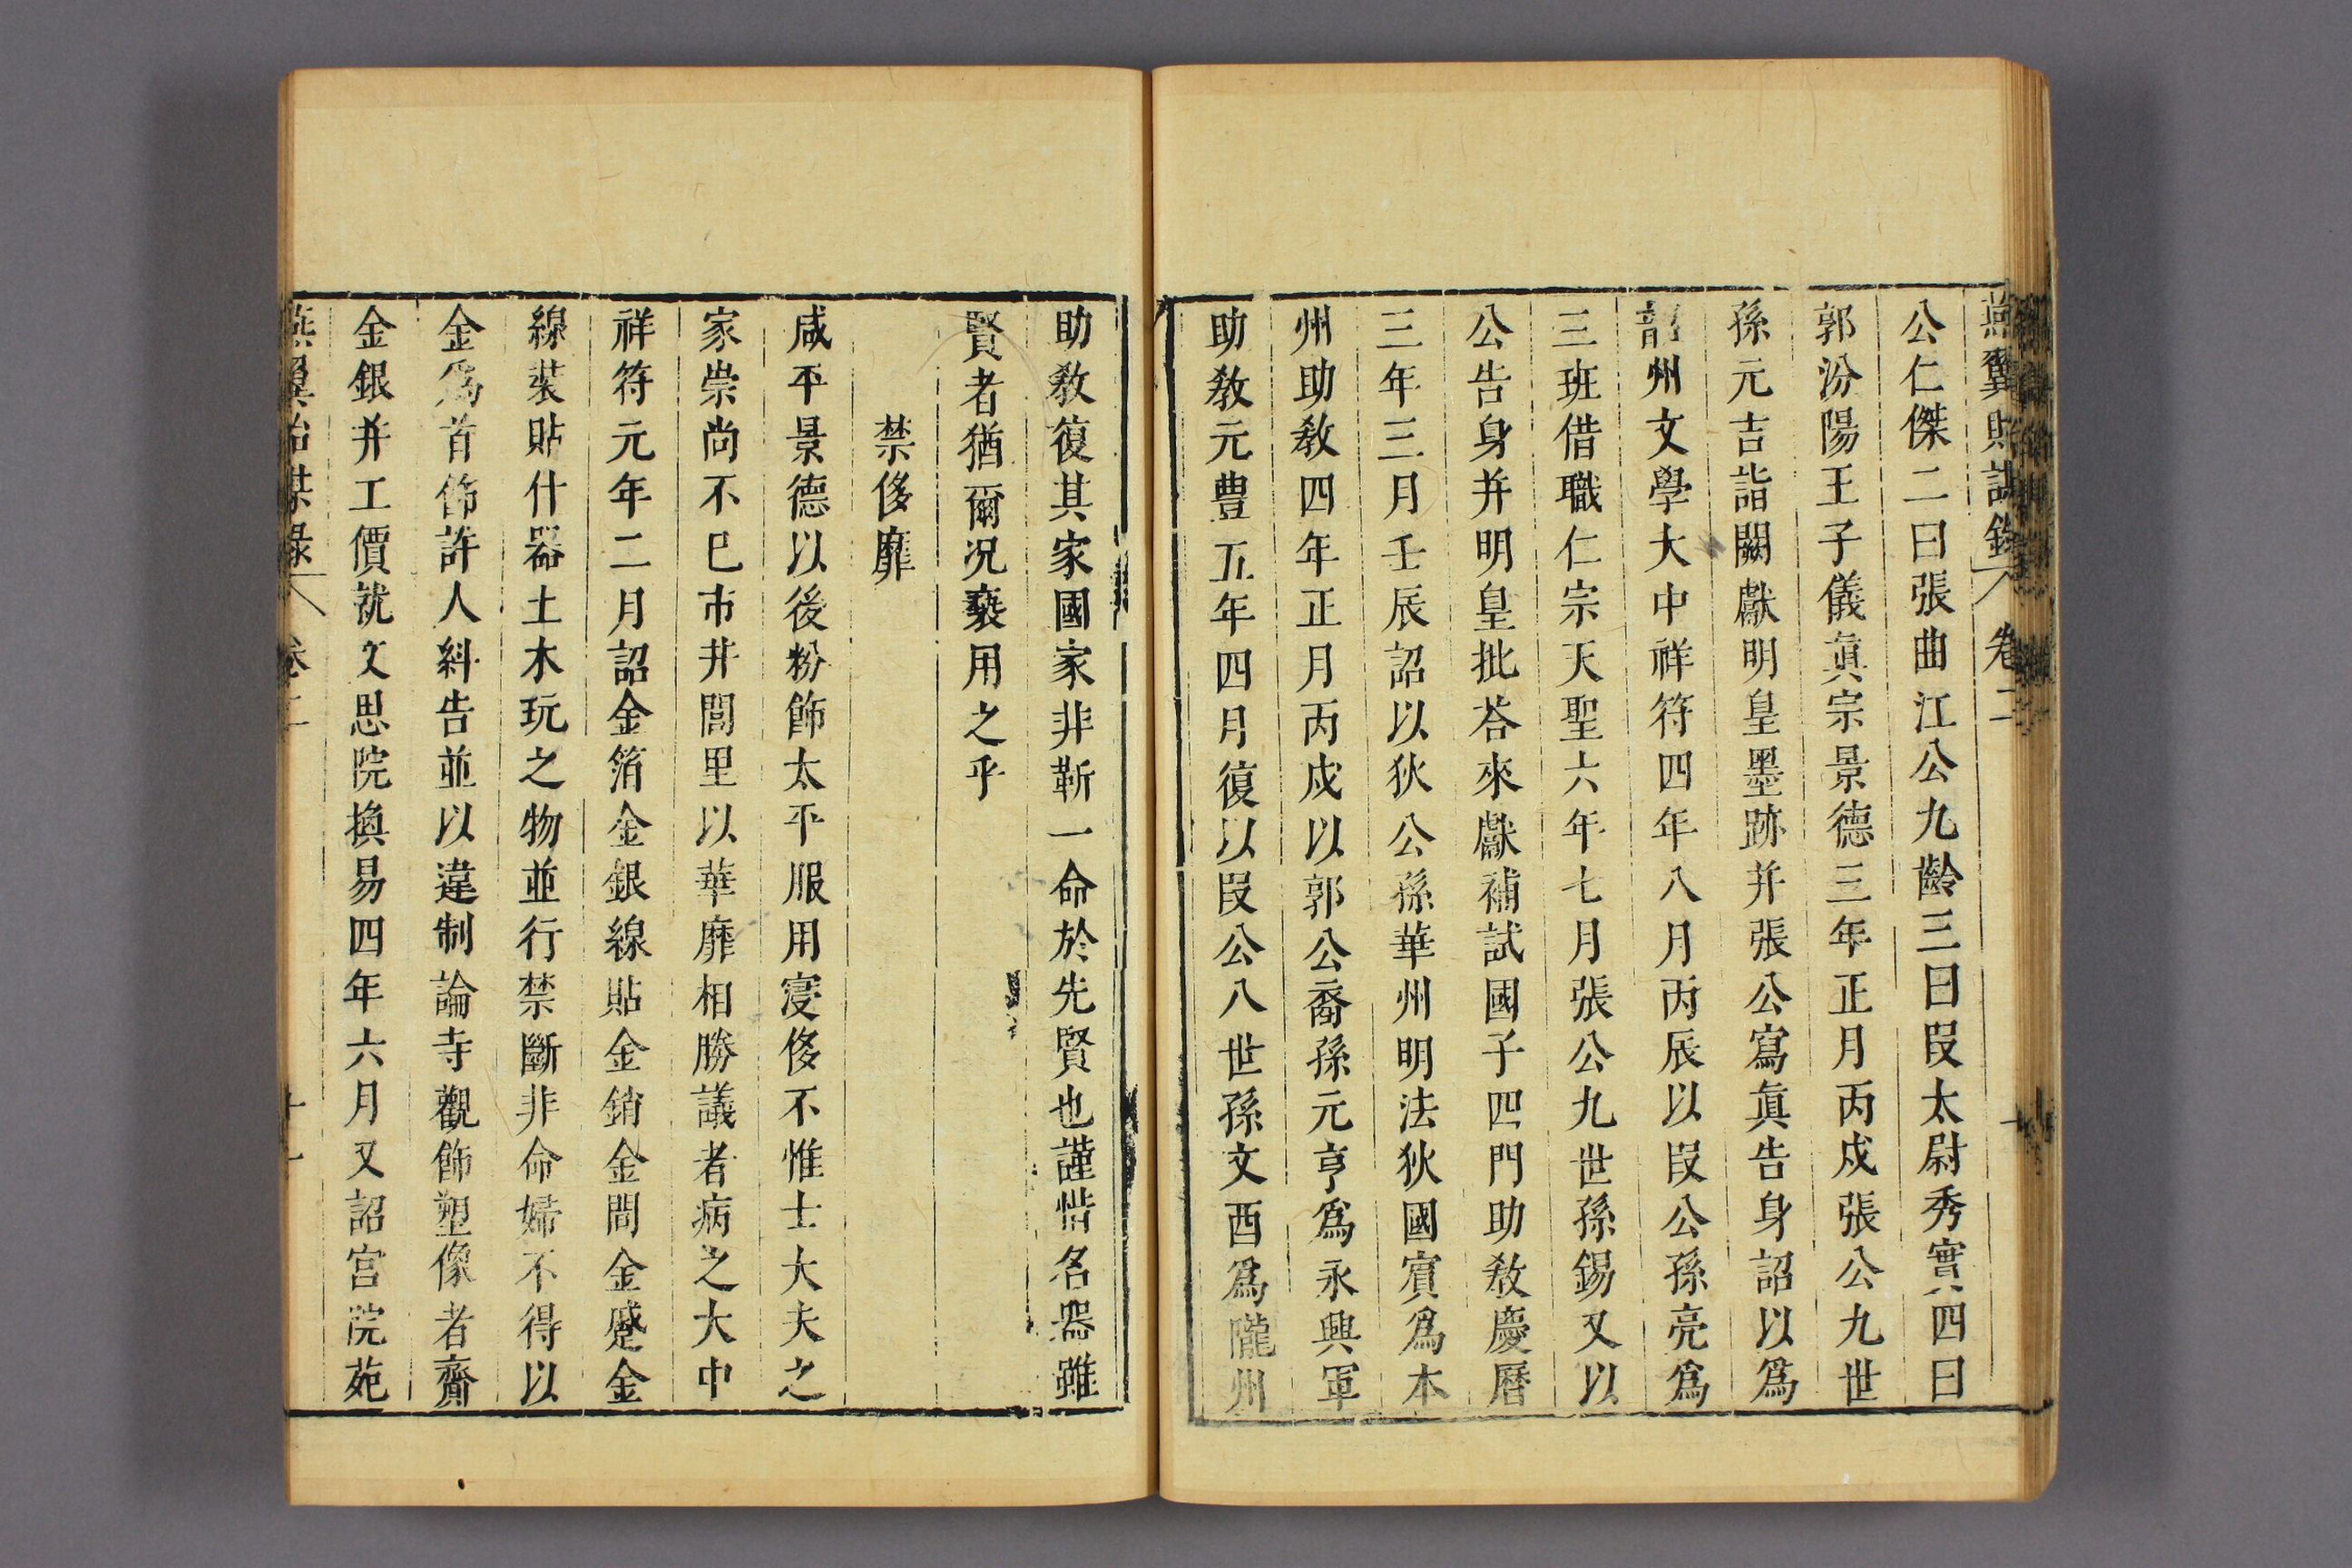 燕翼貽謀錄 卷二
公仁傑二曰張曲江公九齡三曰段太尉秀實四曰
郭汾陽王子儀眞宗景德三年正月丙戌張公九世
孫元吉詣闕獻明皇墨跡并張公寫眞告身詔以爲
韶州文學大中祥符四年八月丙辰以段公孫亮爲
三班借職仁宗天聖六年七月張公九世孫錫又以
公告身并明皇批荅來獻補試國子四門助敎慶曆
三年三月壬辰詔以狄公孫華州明法狄國賓爲本
州助敎四年正月丙戌以郭公裔孫元亨爲永興軍
助敎元豐五年四月復以段公八世孫文酉爲隴州
助敎復其家國家非靳一命於先賢也謹惜名器雖
賢者猶爾况褻用之乎
禁侈靡
咸平景德以後粉飾太平服用寖侈不惟士大夫之
家崇尚不已市井閭里以華靡相勝議者病之大中
祥符元年二月詔金箔金銀線貼金銷金間金蹙金
線裝貼什器土木玩之物並行禁斷非命婦不得以
金爲首飾許人糾告並以違制論寺觀飾塑像者齎
金銀并工價就文思院換易四年六月又詔宮院苑
燕翼貽謀錄 卷二 十一